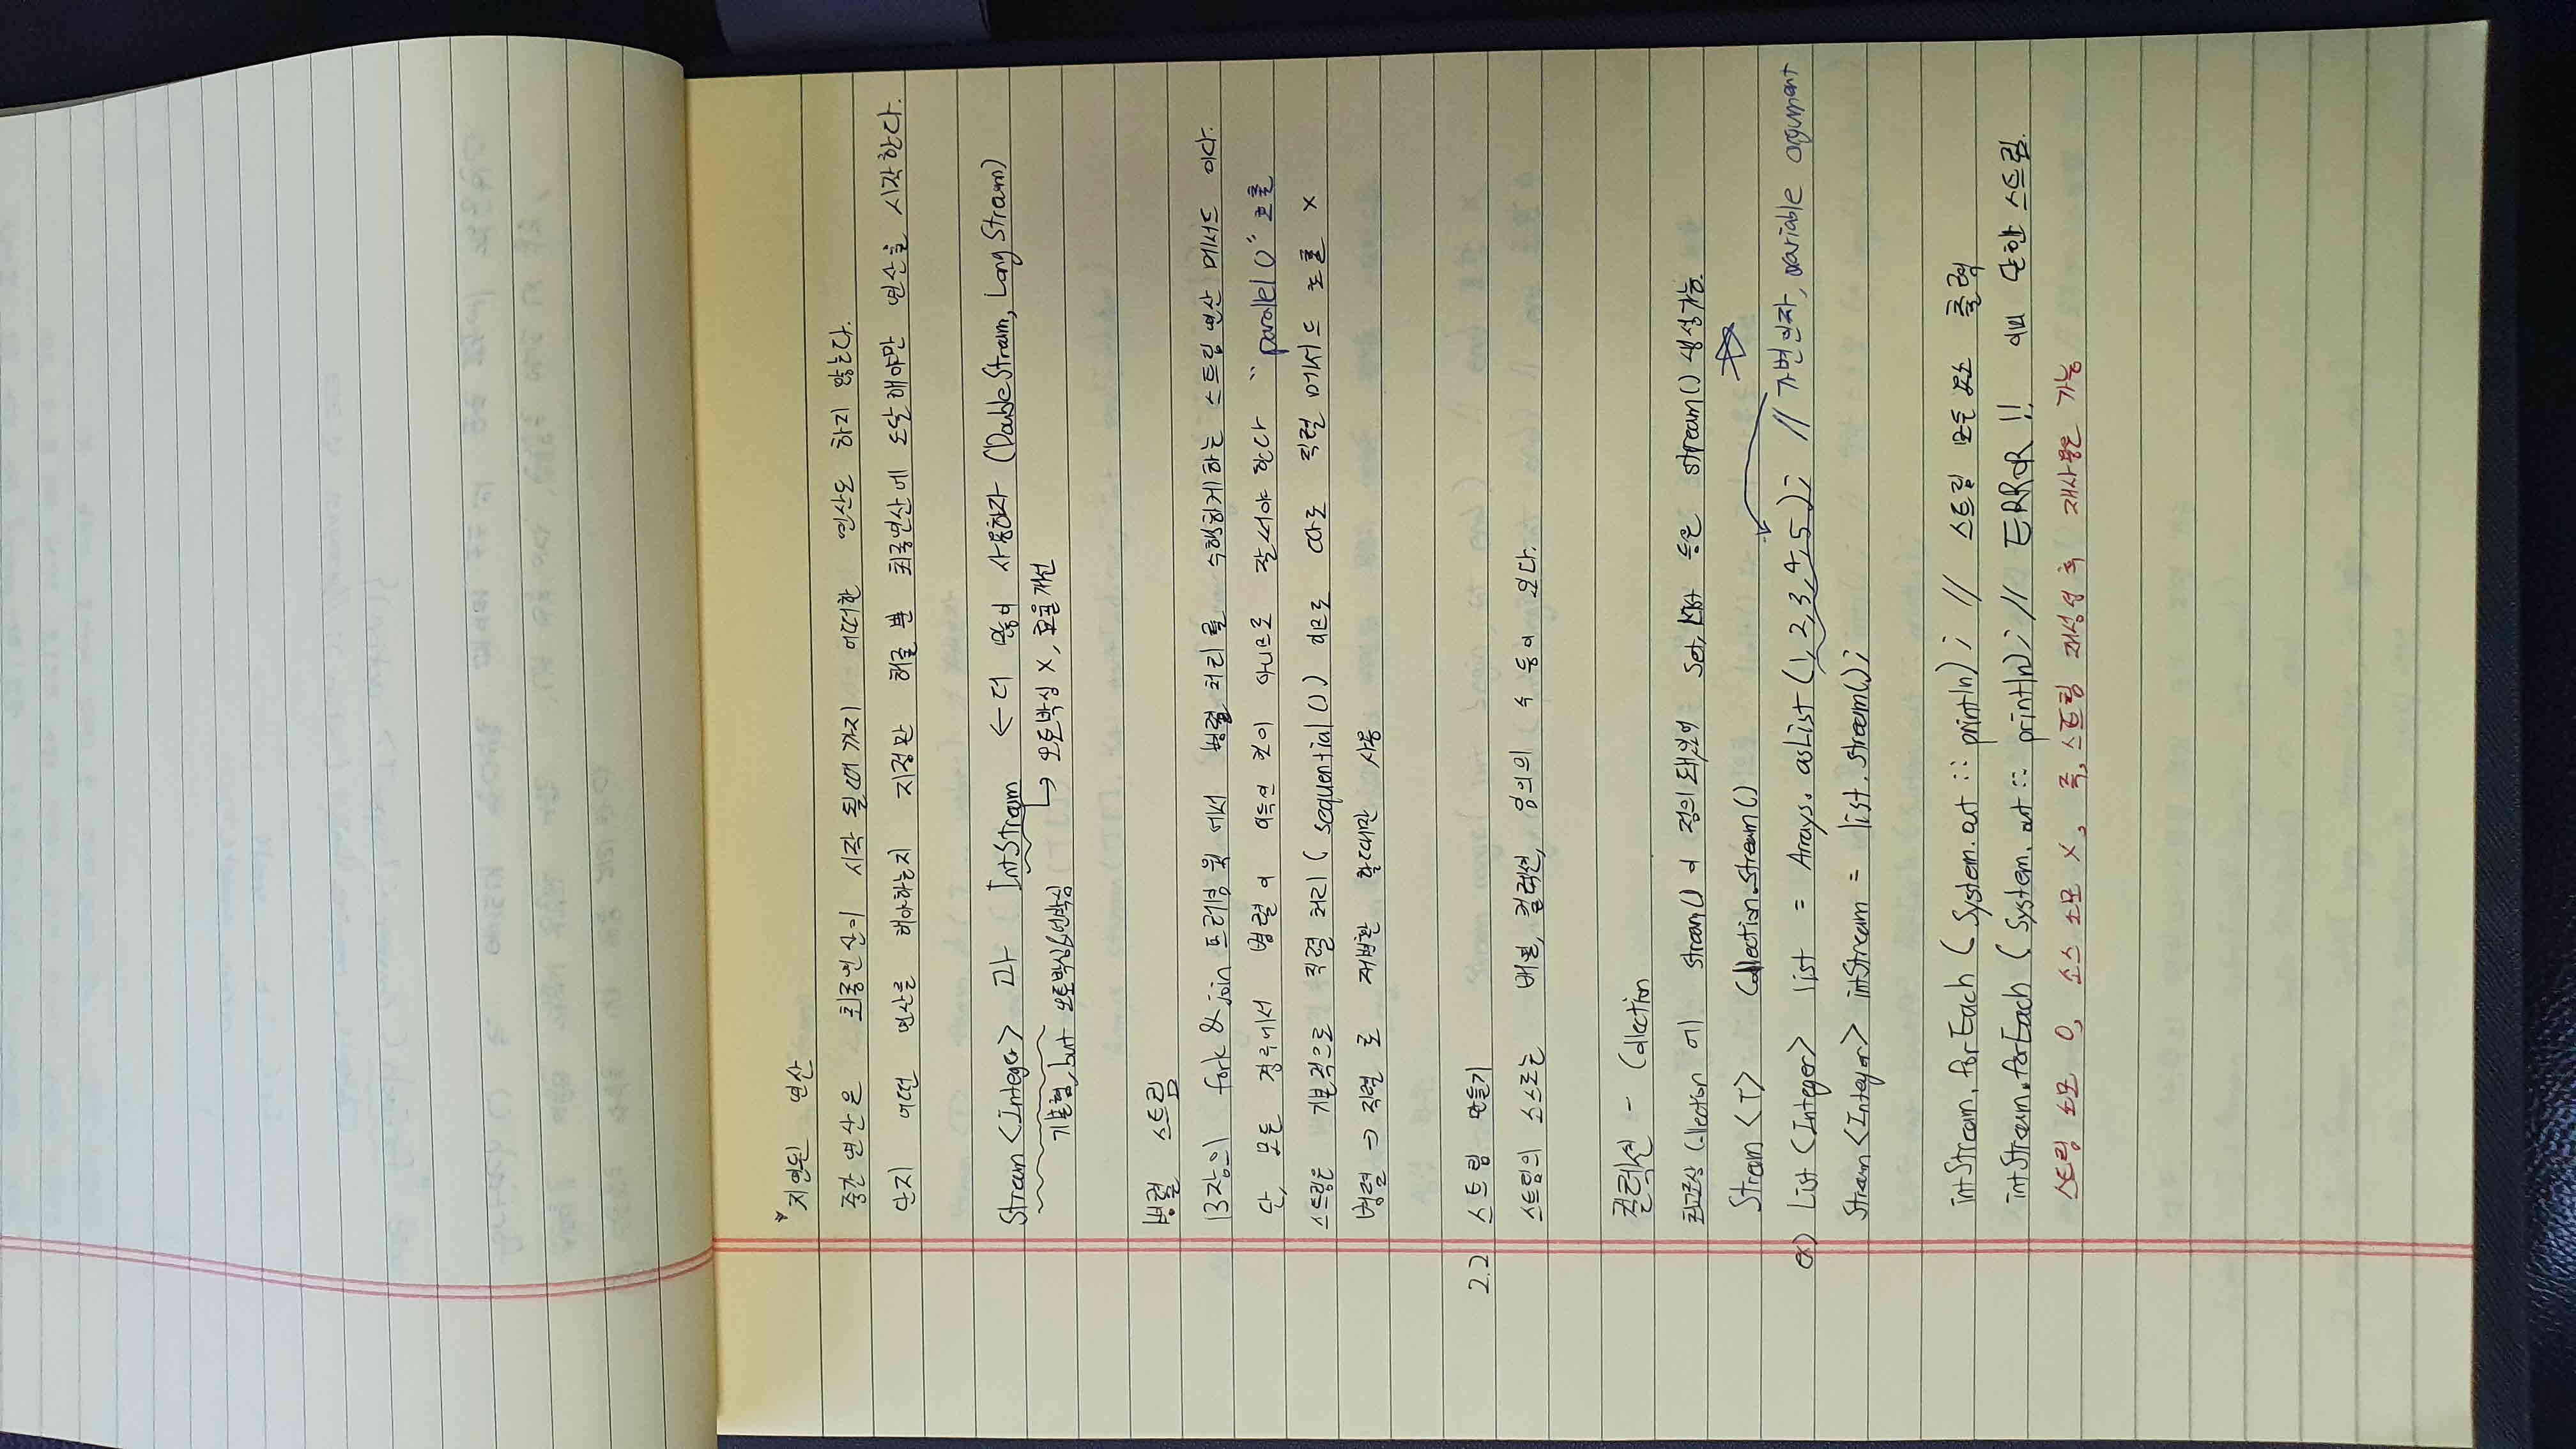 *지연된 연산
중간 연산은 최종연산이 시작 될때 까지 어떠한 연산도 하지 않는다.
단지 어떤 연산을 해야하는지 지정만 해줄 뿐 최종연산에 도달해야만 연산을 시작한다.
Stream <Integer> 과 IntStream ← 더 많이 사용하자 (DoubleStream, LongStream)
기본형, but 오토박싱&언박싱 → 오토박싱 X, 효율개선
병렬 스트림
13장의 fork & join 프레임 웍 에서 병렬 처리를 수행하게하는 스트림 연산 메서드 이다.
단, 모든 경우에서 병렬이 이득인 것이 아니므로 잘써야 한다 "parallel()" 호출
스트림은 기본적으로 직렬 처리 ( sequential() ) 이므로 따로 직렬 메서드 호출 X
병렬 → 직렬 로 재변환 할때만 사용
2.2 스트림 만들기
스트림의 소스로는 배열, 컬렉션, 임의의 수 등이 오다.
컬렉션 - Collection
최고조상 Collection 에 stream() 이 정의돼있어 Set, List 등은 stream() 생성가능.
Stream <T> Collection.stream()
ex) List <Integer> list = Arrays.asList (1, 2, 3, 4, 5); // 가변인자, variable argument
Stream <Integer> intStream = list.stream();
intStream.forEach ( System.out :: println) ; // 스트림 모든 요소 출력
intStream.forEach ( System.out :: println) ; // ERROR !! 이미 닫힌 스트림.
스트림 소모 O, 소스 소모 X, 즉, 스트림 재생성 후 재사용은 가능